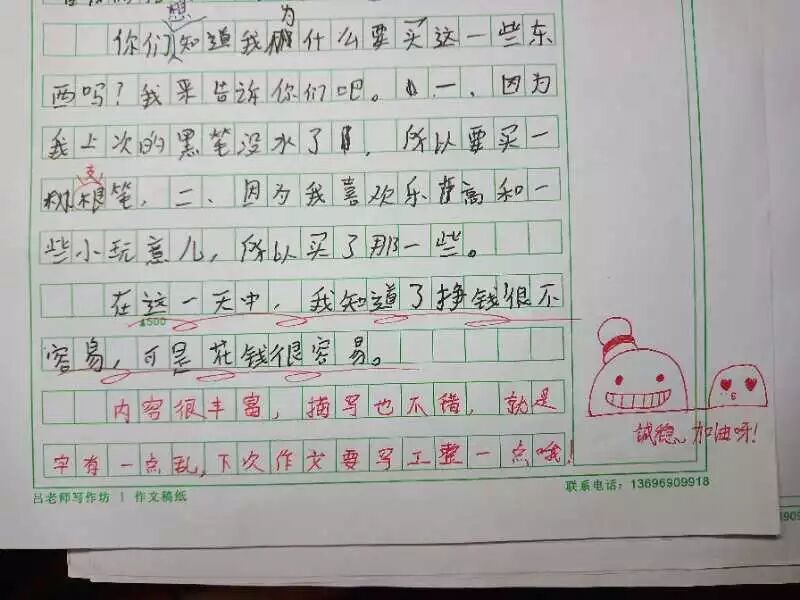 想 为
你们知道我什么要买这一些东
西吗？我来告诉你们吧。一、因为
我上次的黑笔没水了，所以要买一
支
根笔，二、因为我喜欢乐高和一
些小玩意儿，所以买了那一些。
在这一天中，我知道了挣钱很不
▲500
容易，可是花钱很容易。
内容很丰富，描写也不错，就是
字有一点乱，下次作文要写工整一点哦！
加油呀！
吕老师写作坊 | 作文稿纸
联系电话：13696909918